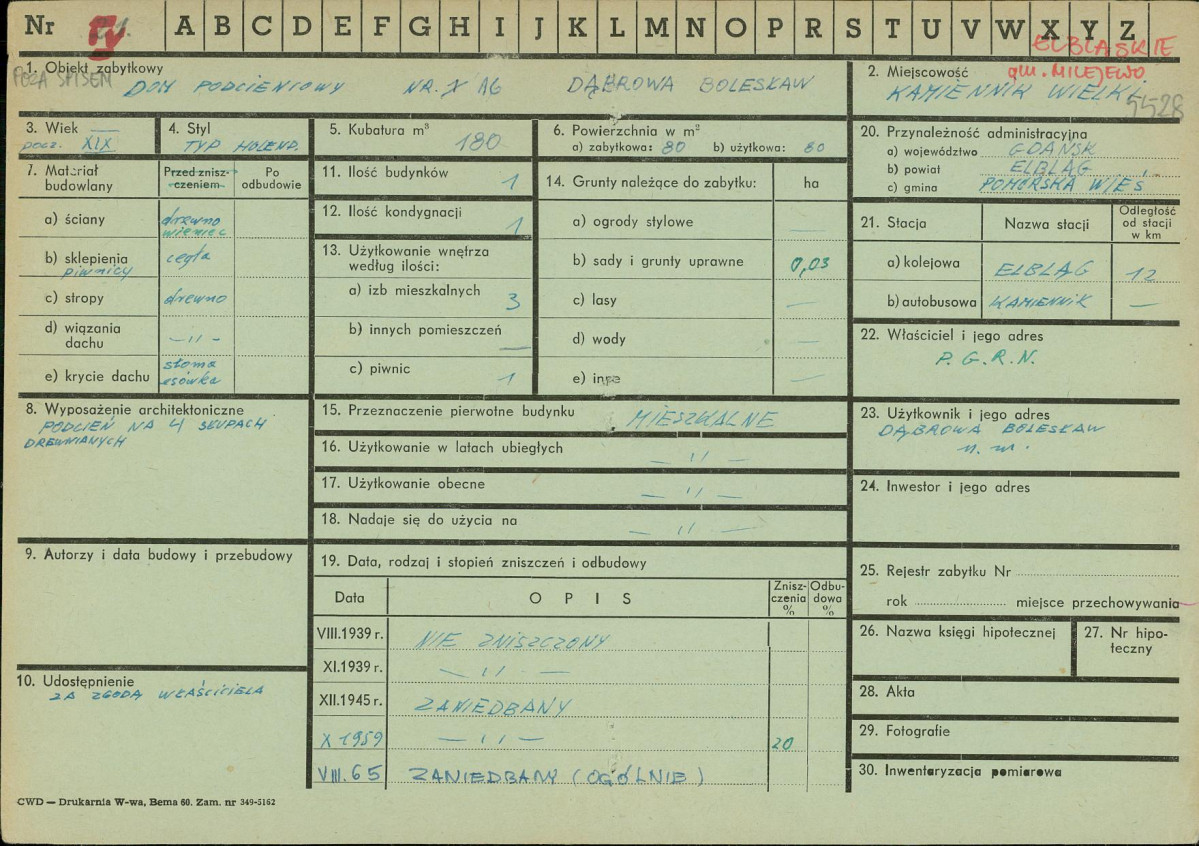 Nr A B C D E F G H I J K L M N O P R S T U V W X Y Z
ELBLĄSKIE
gm. MILEJEWO.
POZA SPISEM
1. Obiekt zabytkowy
DOM PODCIENIOWY NR. X 16 DĄBROWA BOLESŁAW
2. Miejscowość
KAMIENNIK WIELKI
5528
3. Wiek —
pocz. XIX
4. Styl
TYP HOLEND.
5. Kubatura m³
180
6. Powierzchnia w m²
a) zabytkowa: 80 b) użytkowa: 80
7. Materiał budowlany
Przed znisz-czeniem
Po odbudowie
a) ściany drewno wieniec
b) sklepienia piwnicy cegła
c) stropy drewno
d) wiązania dachu — " —
e) krycie dachu słoma esówka
8. Wyposażenie architektoniczne
PODCIEŃ NA 4 SŁUPACH
DREWNIANYCH
9. Autorzy i data budowy i przebudowy
10. Udostępnienie
ZA ZGODĄ WŁAŚCICIELA
11. Ilość budynków 1
12. Ilość kondygnacji 1
13. Użytkowanie wnętrza
według ilości:
a) izb mieszkalnych 3
b) innych pomieszczeń —
c) piwnic 1
14. Grunty należące do zabytku: ha
a) ogrody stylowe —
b) sady i grunty uprawne 0,03
c) lasy —
d) wody —
e) inne —
15. Przeznaczenie pierwotne budynku MIESZKALNE
16. Użytkowanie w latach ubiegłych — " —
17. Użytkowanie obecne — " —
18. Nadaje się do użycia na — " —
19. Data, rodzaj i stopień zniszczeń i odbudowy
Data OPIS Znisz-czenia % Odbu-dowa %
VIII.1939 r. NIE ZNISZCZONY
XI.1939 r. — " —
XII.1945 r. ZANIEDBANY
X 1959 — " — 20
VIII.65 ZANIEDBANY (OGÓLNIE)
20. Przynależność administracyjna
a) województwo GDAŃSK
b) powiat ELBLĄG
c) gmina POMORSKA WIEŚ
21. Stacja Nazwa stacji Odległość od stacji w km
a) kolejowa ELBLĄG 12
b) autobusowa KAMIENNIK —
22. Właściciel i jego adres
P.G.R.N.
23. Użytkownik i jego adres
DĄBROWA BOLESŁAW
n. m.
24. Inwestor i jego adres
25. Rejestr zabytku Nr
rok miejsce przechowywania
26. Nazwa księgi hipotecznej
27. Nr hipo-teczny
28. Akta
29. Fotografie
30. Inwentaryzacja pomiarowa
CWD — Drukarnia W-wa, Bema 60. Zam. nr 349-5162